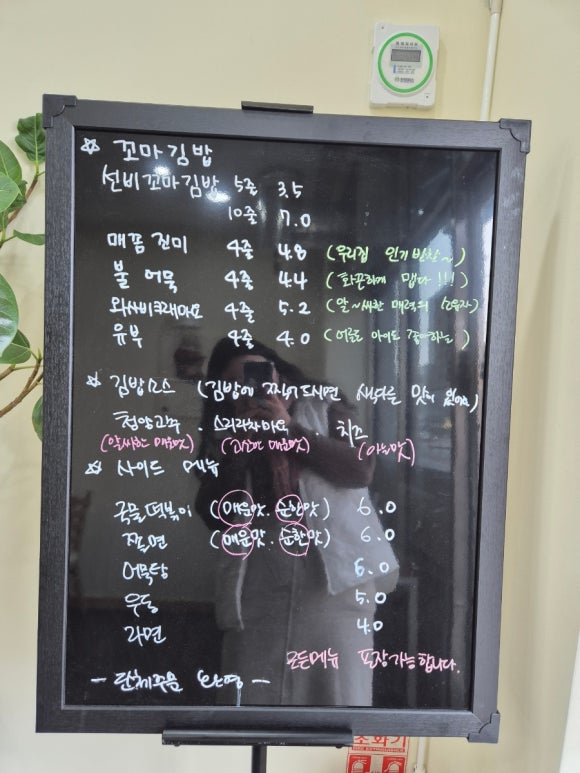 ☆ 꼬마김밥
선비꼬마김밥 5줄 3.5
10줄 7.0
매콤진미 4줄 4.8 (우리집 인기반찬~)
불어묵 4줄 4.4 (화끈하게 맵다!!!)
와사비크래마요 4줄 5.2 (알~싸한 매력의 소유자)
유부 4줄 4.0 (어른도 아이도 좋아하는)
☆ 김밥소스 (김밥에 찍어드시면 색다른 맛이 있어요)
청양고추 . 스리라차마요 . 치즈
(알싸한 매운맛) (매운맛) (아는맛)
☆ 사이드 메뉴
국물떡볶이 (매운맛. 순한맛) 6.0
쫄면 (매운맛. 순한맛) 6.0
어묵탕 6.0
우동 5.0
라면 4.0
모든메뉴 포장가능합니다.
- 단체주문 환영 -
소화기